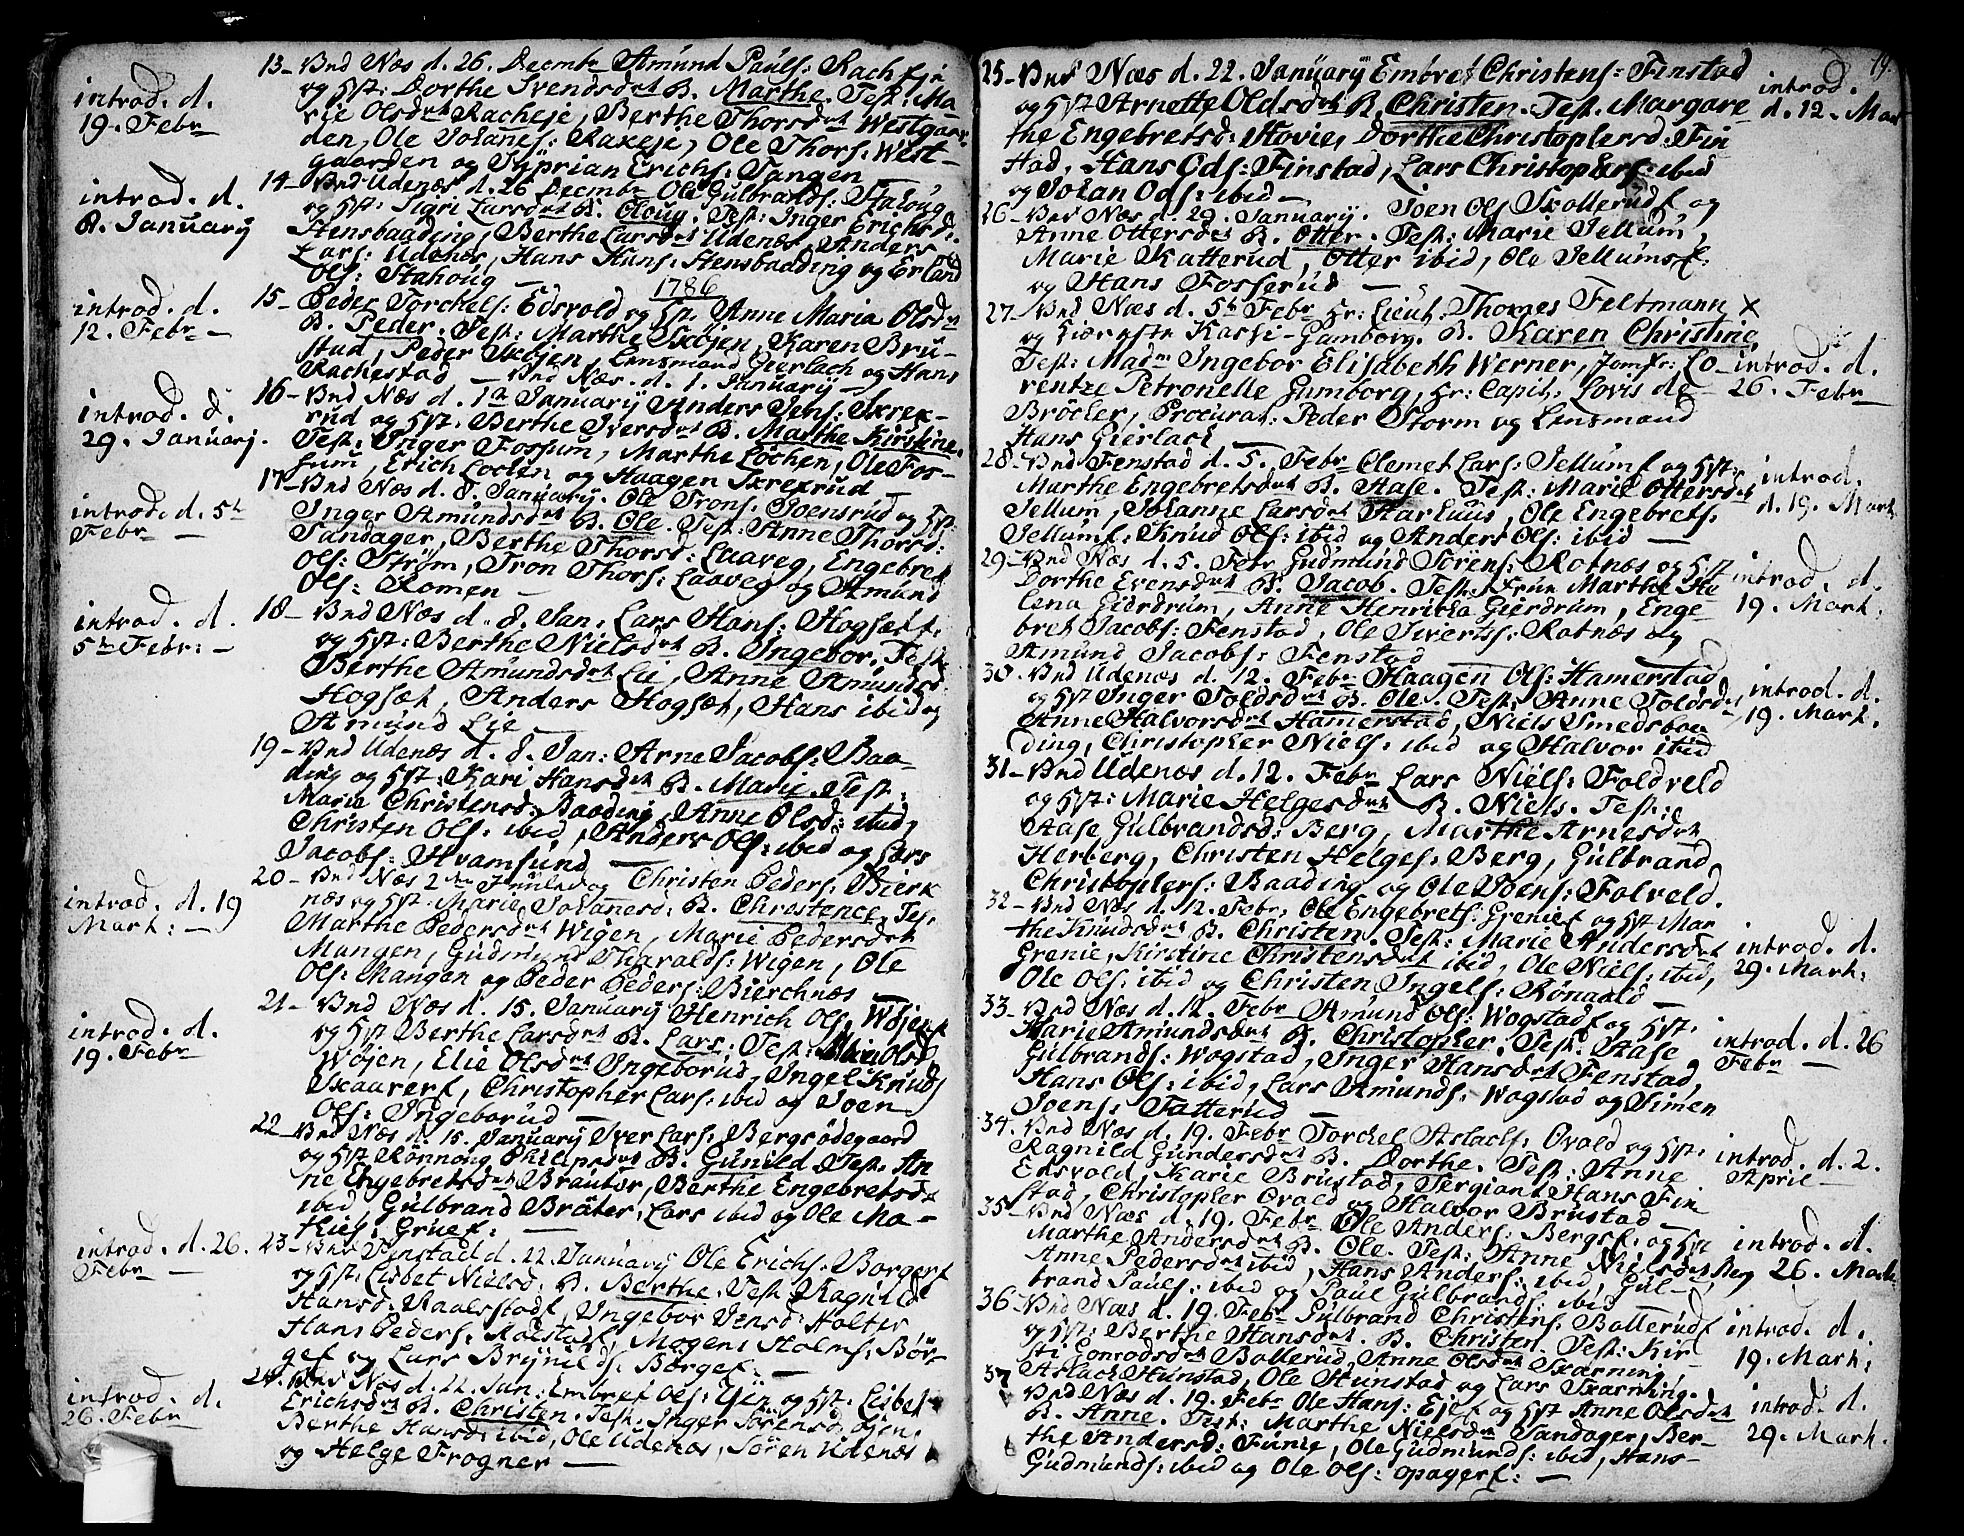 13- Bnd Næs d. 26. Decembr Amund Pauls: Rach
og Hst: Dorthe Svendsdtr B. Marthe. Test: Ma-
rie Olsdtr Racheje, Berthe Thorsdtr Westgaar-
den, Ole Johanes: Raxeje, Ole Thors: West-
gaarden og Syprian Erichs: Tangen
introd. d.
19. Febr
14- Bnd Udenæs d. 26 Decembr Ole Gulbrands: Stahoug
og Hst: Sigri Larsdtr B. Oloug. Test: Inger Erichsd:
Hensbaading, Berthe Larsdtr Udenæs, Anders
Lars: Udenæs, Hans Hans: Hensbaading og Erland
Ols: Stahoug
introd. d.
8. January
1786
15- Peder Torchels: Edsvold og Hst. Anne Maria Olsdtr
B. Peder. Test: Marthe Skøjen, Karen Bru-
stad, Peder Skøjen, Lensmand Gierlach og Hans
Rachestad - Bnd Næs. d. 1. January -
introd. d.
12. Febr -
16- Bnd Næs d. 1te January Anders Jens: Skrex-
rud og Hst. Berthe Iversdtr B. Marthe Kirstine.
Test: Inger Fossum, Marthe Lochen, Ole Fos-
sum, Erich Lochen og Haagen Skrexrud
introd. d.
29. January.
17- Bnd Næs d. 8. January. Ole Trons: Joensrud og Hst:
Inger Amundsdtr B. Ole. Test: Anne Thorsd:
Sandager, Berthe Thorsd: Laaveg, Engebret
Ols: Strøm, Tron Thors: Laaveg og Amund
Ols: Romen -
introd. d. 5te
Febr -
18- Bnd Næs d. 8. Jan: Lars Hans: Hogsæt
og Hst: Berthe Nielsdtr B. Ingebor. Test:
Berthe Amundsdtr Lie, Anne Amundsd
Hogsæt, Anders Hogsæt, Hans ibid og
Amund Lie
introd. d.
5te Febr: -
19- Bnd Udenæs d. 8. Jan: Arne Jacobs: Baa-
ding og Hst: Kari Hansdtr B. Marie. Test:
Maria Christensd: Baading, Anne Olsd: ibid,
Christen Ols: ibid, Anders Ols: ibid og Lars
Jacobs: Hvamsund -
20- Bnd Næs 2den Christen Peders: Bierk
næs og Hst: Marie Johanesd: B. Christence. Test.
Marthe Pedersdtr Wigen, Marie Pedersdtr
Mangen, Gudmund Haralds: Wigen, Ole
Ols: Mangen og Peder Peders: Bierchnæs
introd. d. 19
Mart: -
21- Bnd Næs d. 15. January Henrich Ols: Wøjen
og Hst Berthe Larsdtr B. Lars. Test: Olsd
Wøjen, Elie Olsdtr Ingeborud, Ingel Knuds
Skaarer, Christopher Lars: ibid og Joen
Ols: Ingeborud -
introd. d.
19. Febr
22- Bnd Næs d. 15. January Iver Lars: Bergsødegaard
og Hst Rønnoug Philipsdtr B. Gunild. Test. An
ne Engebretsdtr Brauter, Berthe Engebretsdtr
ibid, Gulbrand Brøter, Lars ibid og Ole Ma-
thies: Grue: -
23- Bnd Finstad d. 22. January Ole Erichs: Borger
og Hst: Lisbet Nielsd: B. Berthe. Test Ragnild
Hansd: Raalstad, Ingebor Jensd: Holter
Hans Peders: Raalstad, Mogens Holms: Bør-
ge og Lars Brynilds: Børge: -
introd. d. 26.
Febr -
24. Bnd Næs d. 22. Jan: Embret Ols: Øjen og Hst. Lisbet
Erichsdtr B. Christen. Test. Inger Sørensd: Øjen,
Berthe Hansd: ibid, Ole Udenæs, Søren Udenæs
og Helge Frogner -
introd. d.
26. Febr
19.
25- Bnd Næs d. 22. January Embret Christens: Finstad
og Hst Arnette Oldsdtr B. Christen. Test. Margare
the Engebretsd: Hovie, Dorthe Christophersd: Fin
stad, Hans Ods: Finstad, Lars Christophers: ibid
og Johan Ods: ibid -
introd.
d. 12. Mart
26- Bnd Næs d. 29. January. Joen Ols Skollerud og
Anne Ottersdtr B. Otter. Test: Marie Jellum,
Marie Katterud, Otter ibid, Ole Jellums:
og Hans Fosserud -
27- Bnd Næs d. 5te Febr Hr: Lieut. Thomes Feltmann X
og Kiæreste Kassi-Gumborg. B. Karen Christine,
Test: Madm Ingebor Elisabeth Werner, Jomfr: Lo
rentze Petronelle Gumborg, Hr: Capit. Lovis de
Brøcher, Procurat: Peder Storm og Lensmand
Hans Gierlach -
introd. d.
26. Febr
28- Bnd Fenstad d. 5. Febr Clemet Lars: Jellum og Hst:
Marthe Engebretsdtr B. Aase. Test: Marie Ottersdtr
Jellum, Johanne Larsdtr Harhuus, Ole Engebrets:
Jellum: Knud Ols: ibid og Anders Ols: ibid -
introd.
d. 19. Mart.
29- Bnd Næs d. 5. Febr Gudmund Sørens: Rotnæs og Hst.
Dorthe Evensdtr B. Jacob. Test: Frun Marthe He
lena Gierdrum, Anne Henricha Gierdrum, Enge-
bret Jacobs: Fenstad, Ole Siverts: Rotnæs og
Amund Jacobs: Fenstad
introd. d.
19. Mart:
30. Bnd Udenæs d. 12. Febr Haagen Ols: Hamerstad
og Hst Inger Toldsdtr B. Ole. Test: Anne Toldsd:
Anne Halvorsdtr Hamerstad, Niels Smedsbaa
ding, Christopher Niels: ibid og Halvor ibid
introd. d.
19. Mart.
31- Bnd Udenæs d. 12. Febr Lars Niels: Foldveld
og Hst: Marie Helgesdtr B. Niels. Test:
Aase Gulbrandsd: Berg, Marthe Arnesdtr
Herberg, Christen Helges: Berg, Gulbrand
Christophers: Baading og Ole Joens: Folveld.
32- Bnd Næs d. 12. Febr: Ole Engebrets: Grenie og Hst Mar
the Knudsdtr B. Christen. Test: Marie Andersdtr
Grenie, Kirstine Christensdtr ibid, Ole Niels: ibid,
Ole Ols: ibid og Christen Ingels: Rønaald -
introd. d.
29. Mart:
33- Bnd Næs d. 12. Febr Amund Ols: Wogstad og Hst.
Marie Amundsdtr B. Christopher. Test: Aase
Gulbrands: Wogstad, Inger Hansdtr Fenstad,
Hans Ols: ibid, Lars Amunds: Wogstad og Simen
Joens: Tatterud -
introd. d. 26
Febr -
34. Bnd Næs d. 19. Febr Torchel Aslachs: Ovald og Hst.
Ragnild Gundersdtr B. Dorthe. Test: Anne
Edsvold, Karie Brustad, Sergiant Hans Fin
stad, Christopher Ovald og Halvor Brustad -
introd. d. 2.
April -
35- Bnd Næs d. 19. Febr Ole Anders: Bergs: og Hst
Marthe Andersdtr B. Ole. Test: Anne Nielsdtr Berg
Anne Pedersdtr ibid, Hans Anders: ibid, Gul-
brand Pauls: ibid og Paul Gulbrands: ibid
introd. d.
26. Mart
36- Bnd Næs d. 19. Febr Gulbrand Christens: Bollerud
og Hst: Berthe Hansdtr. B. Christen. Test: Kir-
sti Conradsdtr Bollerud, Anne Olsdtr Skarning,
Aslach Hunstad, Ole Hunstad og Lars Skarning.
introd. d.
19. Mart:
37 Bnd Næs d. 19. Febr Ole Hans: Eje og Hst Anne Olsdtr
B. Anne. Test: Marthe Nielsdtr Sandager, Ber-
the Andersd: Funie, Ole Gudmunds: ibid, Hans
Gudmunds: ibid og Ole Ols: opager: -
introd. d.
29. Mart.